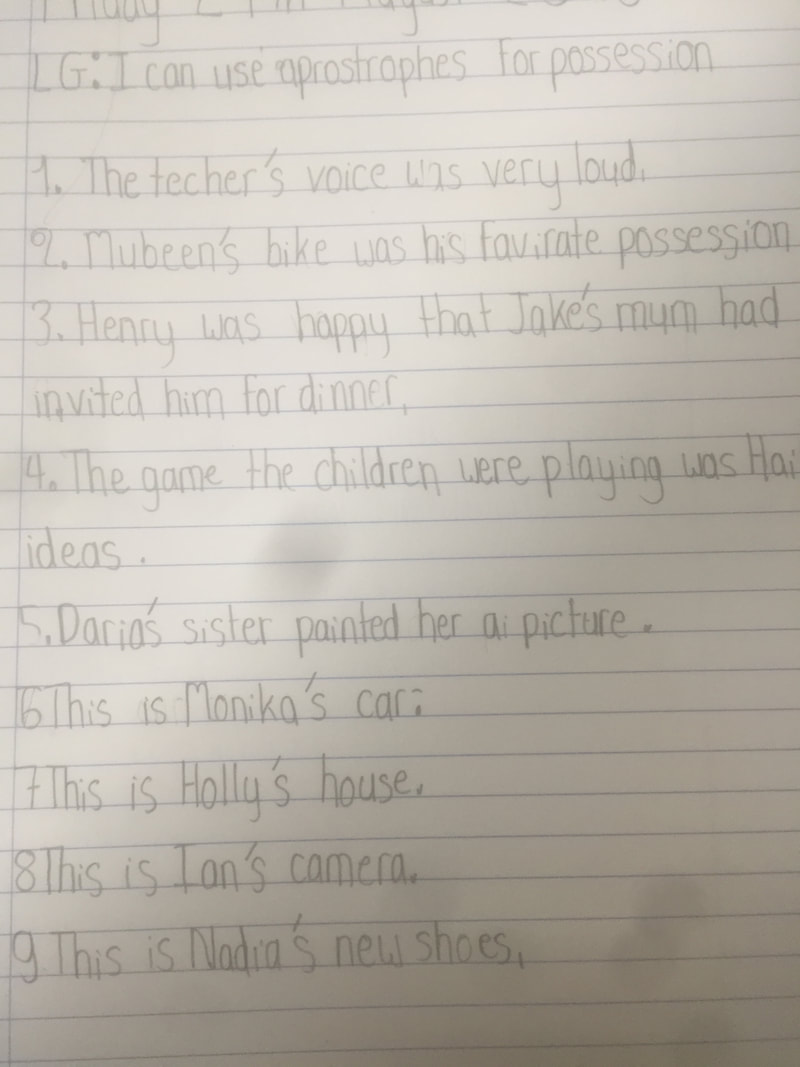 LG: I can use aprostrophes for possession
1. The techer's voice was very loud.
2. Mubeen's bike was his favirate possession
3. Henry was happy that Jake's mum had
invited him for dinner,
4. The game the children were playing was Hai
ideas.
5. Daria's sister painted her a picture.
6 This is Monika's car.
7 This is Holly's house.
8 This is Ian's camera.
9 This is Nadia's new shoes,